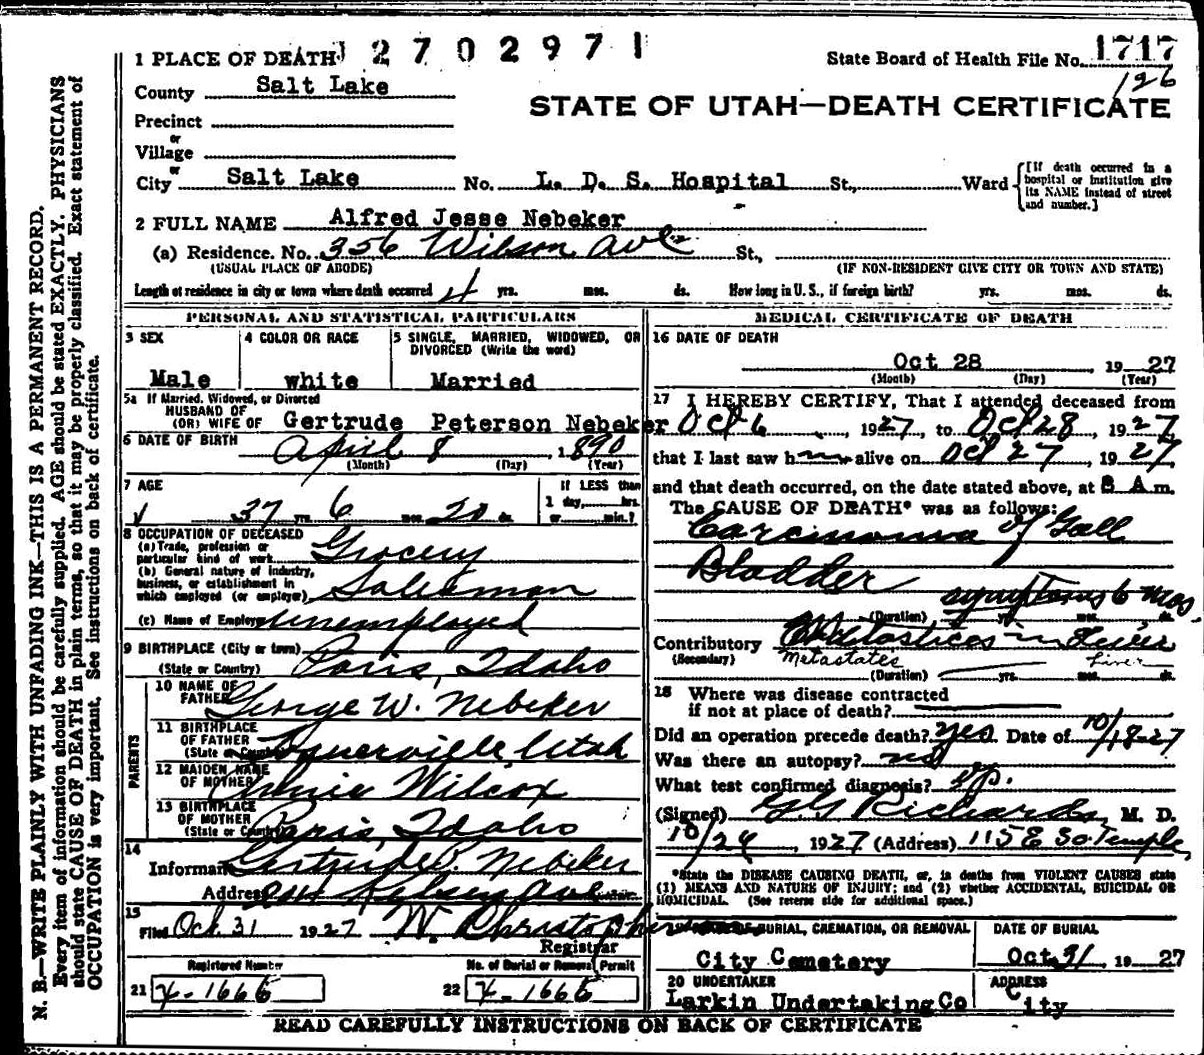 1 PLACE OF DEATH 2702971 State Board of Health File No. 1717
126
County Salt Lake
STATE OF UTAH—DEATH CERTIFICATE
Precinct
or
Village
or
City Salt Lake No. L. D. S. Hospital St., Ward {[If death occurred in a hospital or institution give its NAME instead of street and number.]
2 FULL NAME Alfred Jesse Nebeker
(a) Residence. No. 356 Wilson Ave St.,
(USUAL PLACE OF ABODE) (IF NON-RESIDENT GIVE CITY OR TOWN AND STATE)
Length of residence in city or town where death occurred 4 yrs. mos. ds. How long in U. S., if foreign birth? yrs. mos. ds.
PERSONAL AND STATISTICAL PARTICULARS
3 SEX 4 COLOR OR RACE 5 SINGLE, MARRIED, WIDOWED, OR
DIVORCED (Write the word)
Male white Married
5a If Married, Widowed, or Divorced
HUSBAND OF
(OR) WIFE OF Gertrude Peterson Nebeker
6 DATE OF BIRTH April 8 1890
(Month) (Day) (Year)
7 AGE If LESS than
37 yrs. 6 mos. 20 ds. 1 day, hrs.
or min.?
8 OCCUPATION OF DECEASED
(a) Trade, profession or
particular kind of work Grocery
(b) General nature of industry,
business, or establishment in
which employed (or employer) Salesman
(c) Name of Employer Unemployed
9 BIRTHPLACE (City or town)
(State or Country) Paris, Idaho
PARENTS
10 NAME OF
FATHER George W. Nebeker
11 BIRTHPLACE
OF FATHER
(State or Country) Utah
12 MAIDEN NAME
OF MOTHER Wilcox
13 BIRTHPLACE
OF MOTHER
(State or Country) Paris, Idaho
14
Informant Gertrude P. Nebeker
Address Ave
15
Filed Oct 31 1927 W. Christopher
Registrar
Registered Number No. of Burial or Removal Permit
21 X-1666 22 X-1666
MEDICAL CERTIFICATE OF DEATH
16 DATE OF DEATH
Oct 28 , 1927
(Month) (Day) (Year)
17 I HEREBY CERTIFY, That I attended deceased from
Oct 6 , 1927, to Oct 28, 1927
that I last saw him alive on Oct 27, 1927
and that death occurred, on the date stated above, at 8 A m.
The CAUSE OF DEATH* was as follows:
Carcinoma of Gall
Bladder
symptoms 6 mos.
(Duration) yrs. mos. ds.
Contributory Metastices in Liver
(Secondary) Metastates Liver
(Duration) yrs. mos. ds.
18 Where was disease contracted
if not at place of death?
Did an operation precede death? yes Date of 10/18-27
Was there an autopsy? no
What test confirmed diagnosis? op.
(Signed) G G Richards, M. D.
1927 (Address) 115 E So Temple
*State the DISEASE CAUSING DEATH, or, in deaths from VIOLENT CAUSES state
(1) MEANS AND NATURE OF INJURY; and (2) whether ACCIDENTAL, SUICIDAL OR
HOMICIDAL. (See reverse side for additional space.)
BURIAL, CREMATION, OR REMOVAL DATE OF BURIAL
City Cemetery Oct 31, 1927
20 UNDERTAKER ADDRESS
Larkin Undertaking Co City
READ CAREFULLY INSTRUCTIONS ON BACK OF CERTIFICATE
N. B.—WRITE PLAINLY WITH UNFADING INK—THIS IS A PERMANENT RECORD.
Every item of information should be carefully supplied. AGE should be stated EXACTLY. PHYSICIANS
should state CAUSE OF DEATH in plain terms, so that it may be properly classified. Exact statement of
OCCUPATION is very important. See instructions on back of certificate.